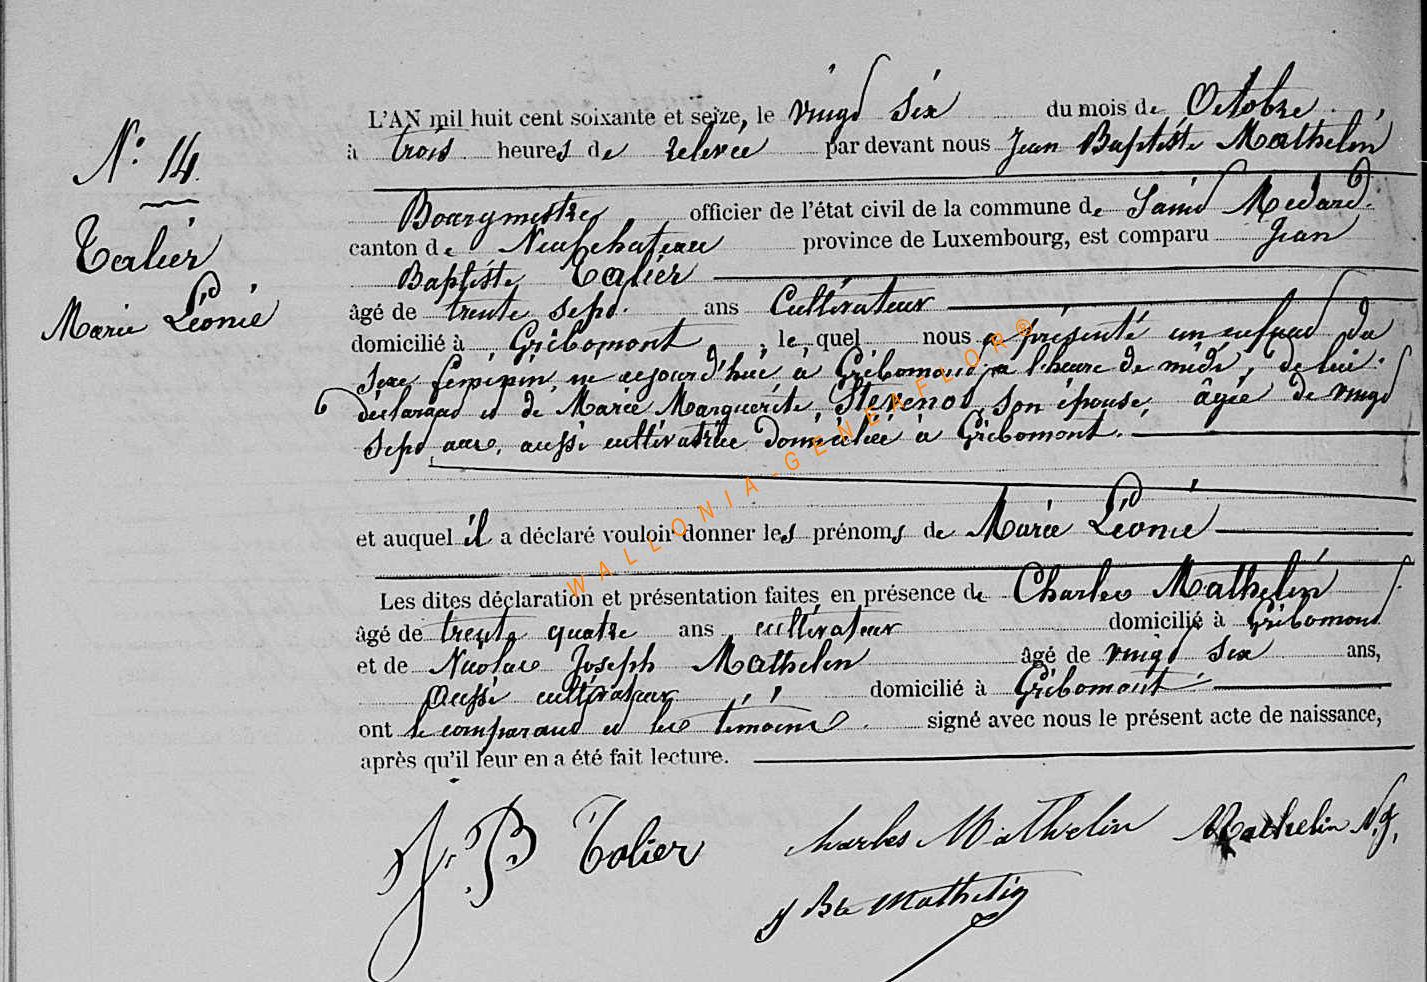 N° 14
Talier
Marie Léonie
L'AN mil huit cent soixante et seize, le vingt six du mois de Octobre
à trois heures de relevée par devant nous Jean Baptiste Mathelin
Bourgmestre officier de l'état civil de la commune de Saint Medard
canton de Neufchateau province de Luxembourg, est comparu Jean
Baptiste Talier
âgé de trente sept ans Cultivateur
domicilié à Gribomont, le quel nous a présenté un enfant du
sexe féminin, né aujourd'hui à Gribomont, à l'heure de midi, de lui
déclarant et de Marie Marguerite Stevenot, son épouse, âgée de vingt
sept ans, aussi cultivatrice domiciliée à Gribomont.
et auquel il a déclaré vouloir donner les prénoms de Marie Léonie
Les dites déclaration et présentation faites en présence de Charles Mathelin
âgé de trente quatre ans cultivateur domicilié à Gribomont
et de Nicolas Joseph Mathelin âgé de vingt six ans,
aussi cultivateur domicilié à Gribomont
ont le comparant et les témoins signé avec nous le présent acte de naissance,
après qu'il leur en a été fait lecture.
J. B Talier Charles Mathelin Mathelin N. J.
J Bte Mathelin
WALLONIA-GENEAFLOR®